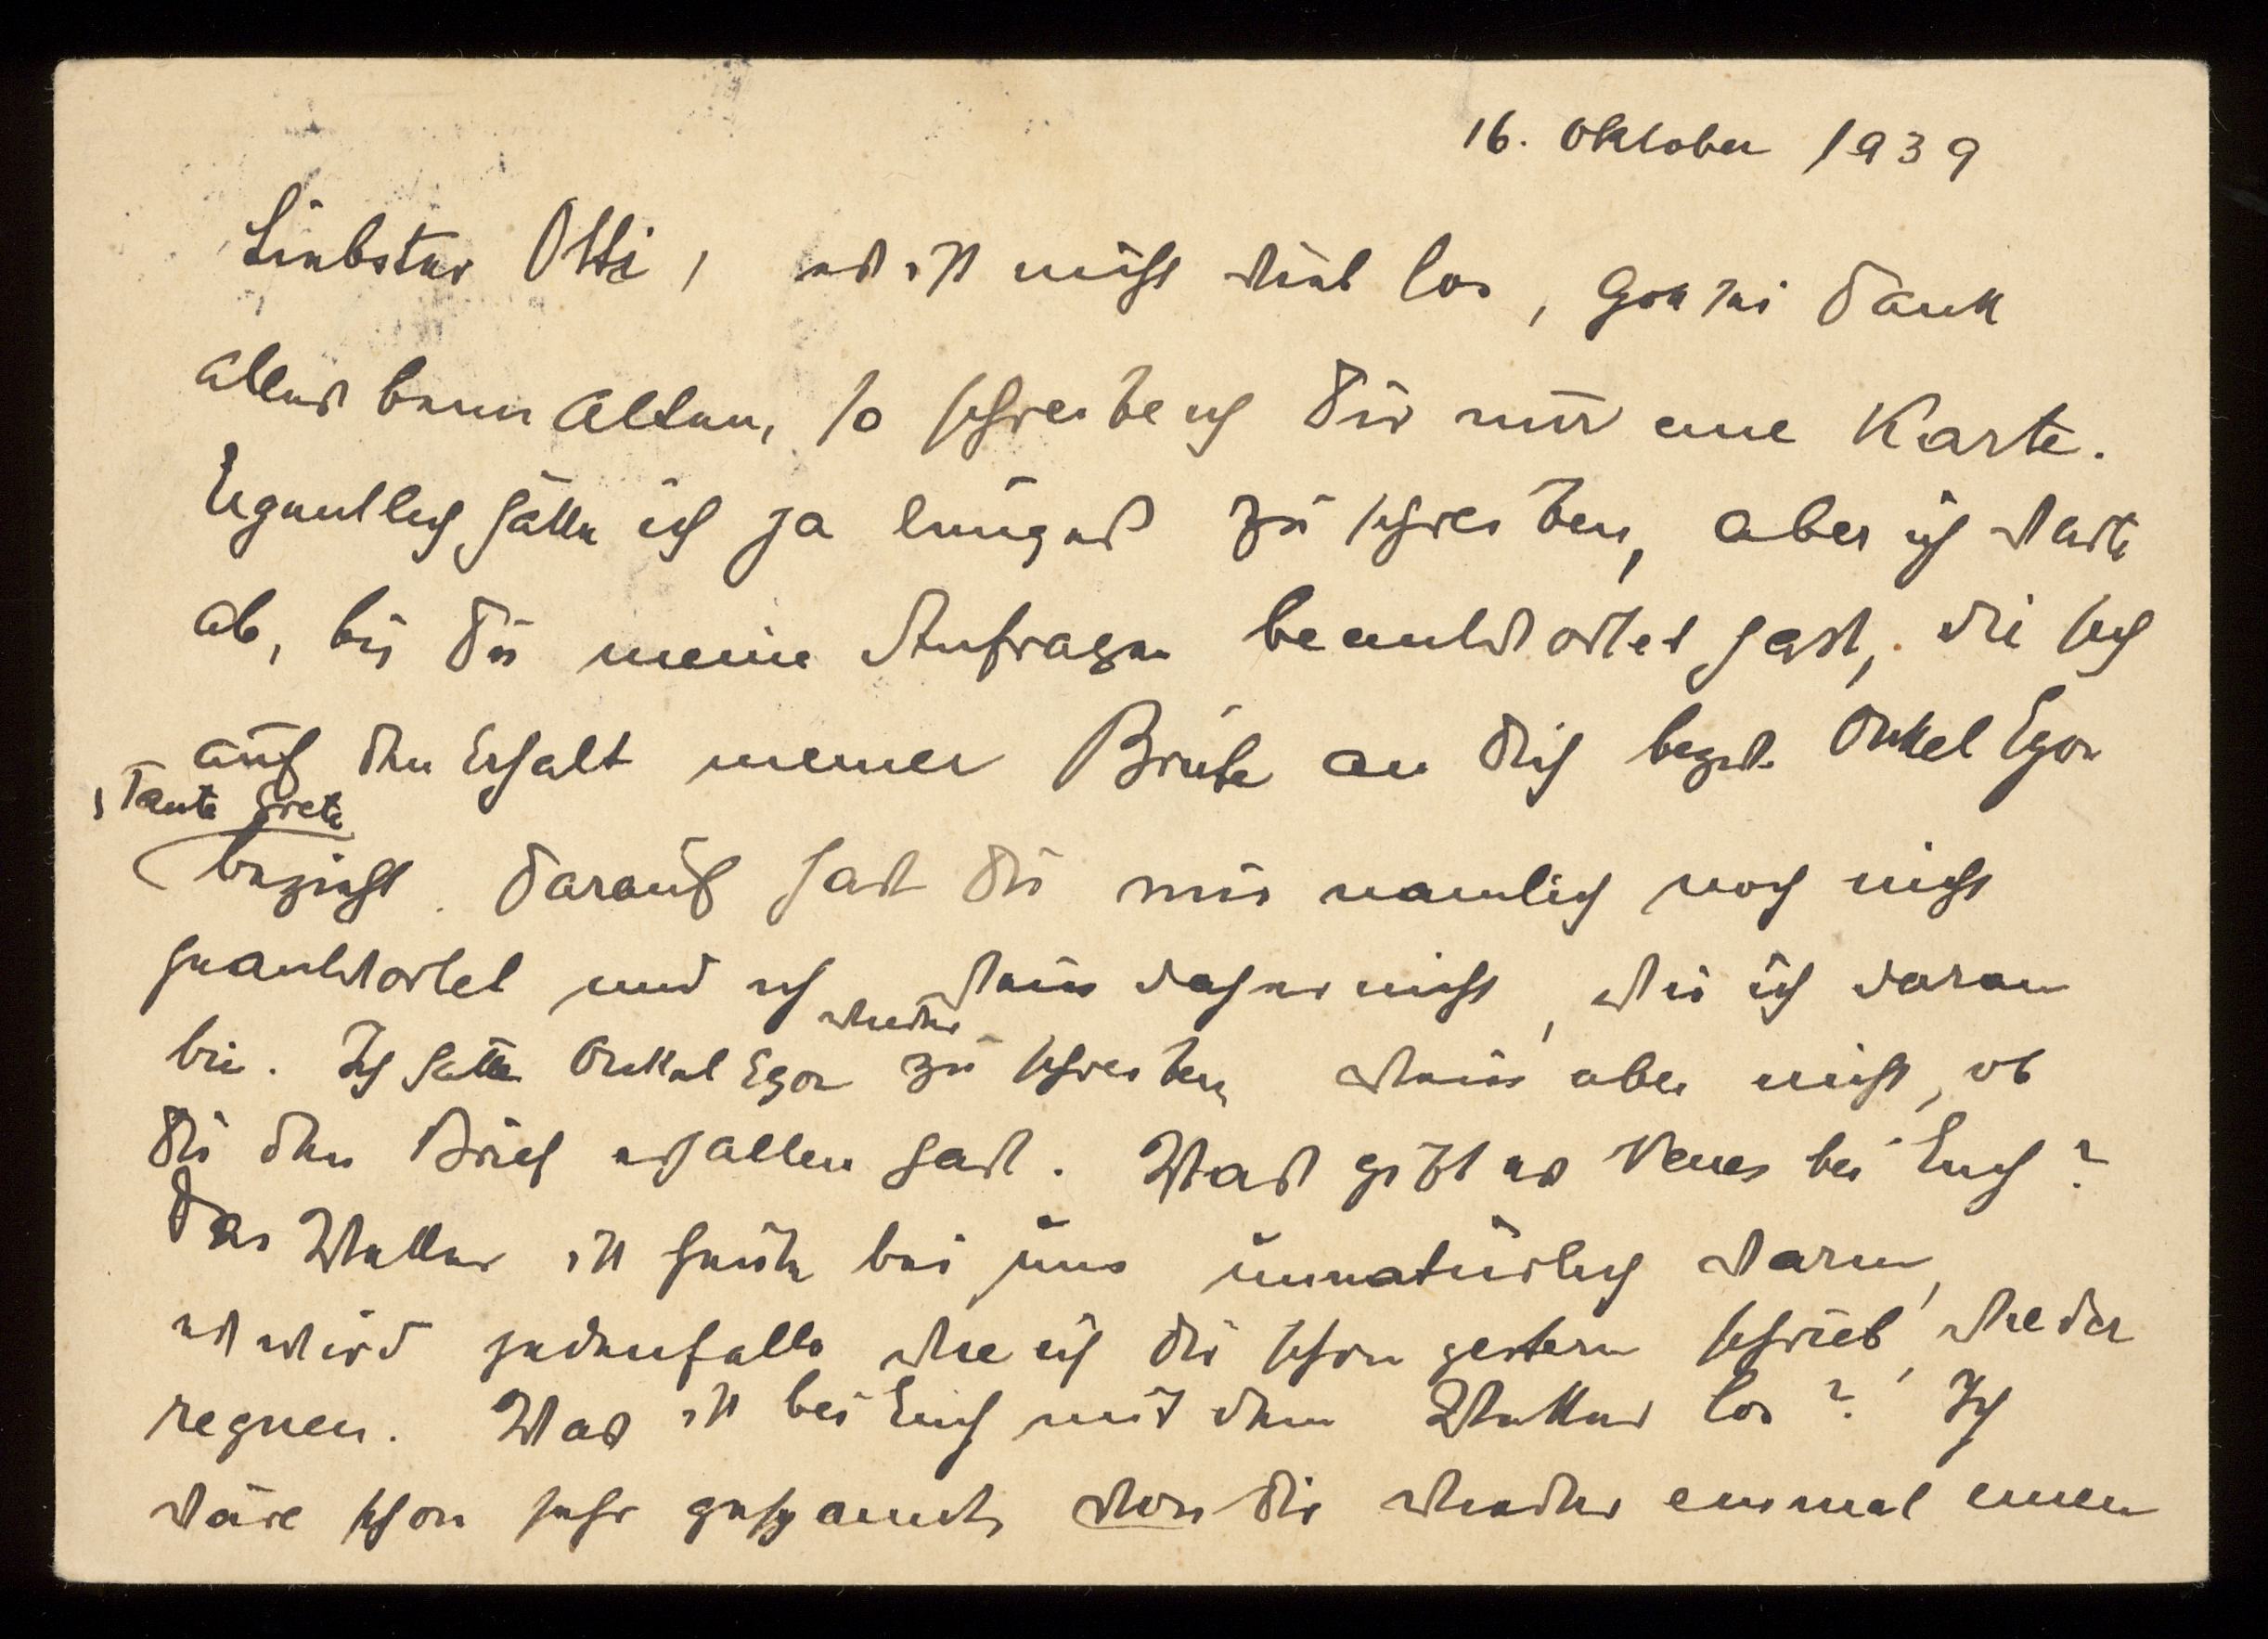 16. Oktober 1939
Liebster Otti, es ist nicht viel los, Gott sei Dank
alles beim Alten, so schreibe ich Dir nur eine Karte.
Eigentlich hätte ich ja einiges zu schreiben, aber ich warte
ab, bis Du meine Anfragen beantwortet hast, die sich
auf den Erhalt meiner Briefe an Dich bezw. Onkel Egon
, Tante Grete
bezieht. Darauf hast Du mir nämlich noch nicht
geantwortet und ich weiss daher nicht, wie ich daran
bin. Ich hätte Onkel Egon wieder zu schreiben, weiss aber nicht, ob
Du den Brief erhalten hast. Was gibt es Neues bei Euch?
Das Wetter ist heute bei uns unnatürlich warm,
es wird jedenfalls wie ich Dir schon gestern schrieb, wieder
regnen. Was ist bei Euch mit dem Wetter los? Ich
wäre schon sehr gespannt, von Dir wieder einmal einen